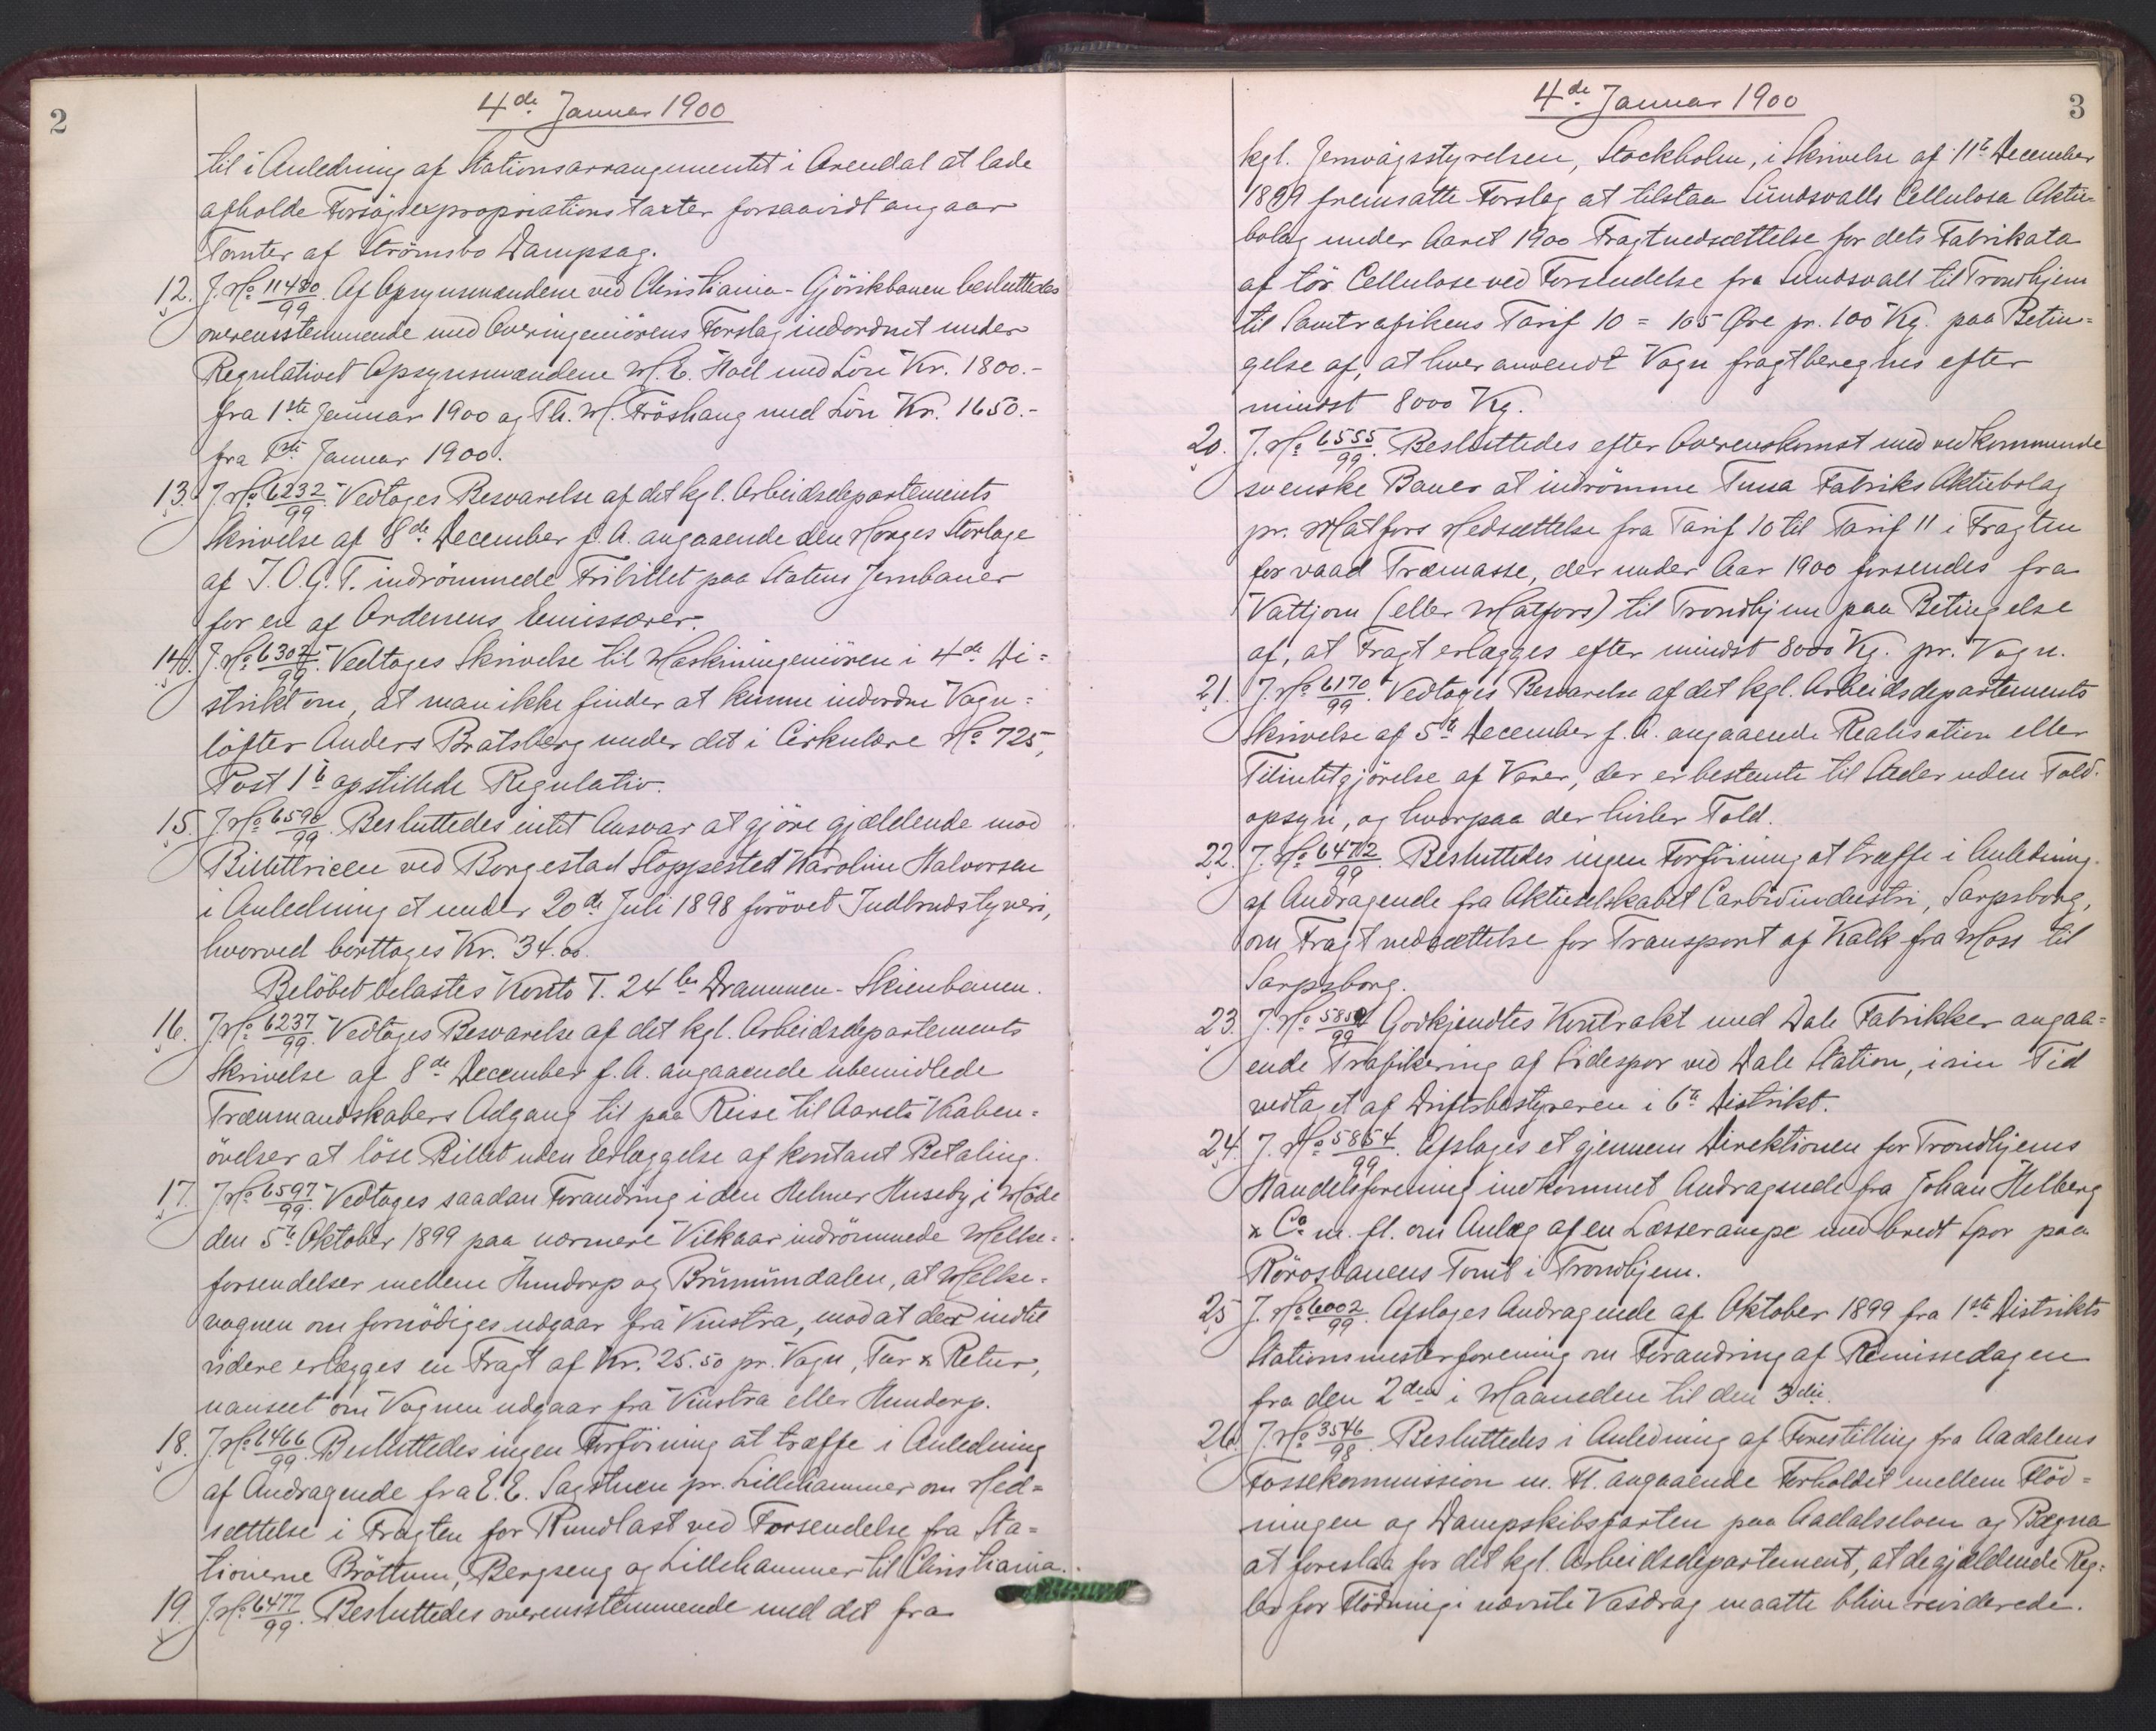 2
4de Januar 1900
til i Anledning af Stationsarrangementet i Arendal at lade
afholde Forsøgsexpropriationstaxter forsaavidt angaar
Tomter af Strømsbo Dampsag.
12. J. No 11480/99. Af Opsynsmændene ved Christiania-Gjövikbanen besluttedes
overensstemmende med Overingeniörens Forslag indordnet under
Regulativet Opsynsmændene M. E. Hoel med Lön Kr. 1800.-
fra 1ste Januar 1900 og Th. M. Fröshaug med Lön Kr. 1650.-
fra 1ste Januar 1900.
13. J. No 6232/99. Vedtoges Besvarelse af det kgl. Arbeidsdepartements
Skrivelse af 8de December f. A. angaaende den Norges Storloge
af I.O.G.T. indrömmede Fribillet paa Statens Jernbaner
for en af Ordenens Emissærer.
14. J. No 6302/99. Vedtoges Skrivelse til Maskiningeniören i 4de Di=
strikt om, at man ikke finder at kunne indordne Vogn=
löfter Anders Bratsberg under det i Cirkulære No 725,
Post 1 b opstillede Regulativ.
15. J. No 6590/99. Besluttedes intet Ansvar at gjöre gjældende mod
Billettricen ved Borgestad Stoppested Karoline Halvorsen
i Anledning et under 20de Juli 1898 forövet Indbrudstyveri,
hvorved borttoges Kr. 34.00.
Belöbet belastes Konto T. 24 Drammen-Skienbanen.
16. J. No 6237/99. Vedtoges Besvarelse af det kgl. Arbeidsdepartements
Skrivelse af 8de December f. A. angaaende ubemidlede
Trænmandskabers Adgang til paa Reise til Aarets Vaaben=
övelser at löse Billet uden Erlæggelse af kontant Betaling.
17. J. No 6597/99. Vedtoges saadan Forandring i den Helmer Huseby i Möde
den 5te Oktober 1899 paa nærmere Vilkaar indrömmede Melke=
forsendelser mellem Hundorp og Brumunddalen, at Melke=
vognen om fornödiges udgaar fra Vinstra, mod at der indtil
videre erlægges en Fragt af Kr. 25.50 pr. Vogn, Tur & Retur,
uanseet om Vognen udgaar fra Vinstra eller Hundorp.
18. J. No 6466/99. Besluttedes ingen Forföining at træffe i Anledning
af Andragende fra E. E. Sagstuen pr. Lillehammer om Ned=
sættelse i Fragten for Rundlast ved Forsendelse fra Sta=
tionerne Bröttum, Bergseng og Lillehammer til Christiania.
19. J. No 6477/99. Besluttedes overensstemmende med det fra
3
4de Januar 1900
kgl. Jernvägsstyrelsen, Stockholm, i Skrivelse af 11te December
1899 fremsatte Forslag at tilstaa Sundsvalls Cellulosa Aktie=
bolag under Aaret 1900 Fragtnedsættelse for dets Fabrikata
af tör Cellulose ved Forsendelse fra Sundsvall til Trondhjem
til Samtrafikens Tarif 10 = 105 Øre pr. 100 Kg. paa Betin=
gelse af, at hver anvendt Vogn fragtberegnes efter
mindst 8000 Kg.
20. J. No 6555/99. Besluttedes efter Overenskomst med vedkommende
svenske Baner at indrömme Tuna Fabriks Aktiebolag
pr. Matfors Nedsættelse fra Tarif 10 til Tarif 11 i Fragten
for vaad Træmasse, der under Aar 1900 forsendes fra
Vattjom (eller Matfors) til Trondhjem paa Betingelse
af, at Fragt erlægges efter mindst 8000 Kg. pr. Vogn.
21. J. No 6170/99. Vedtoges Besvarelse af det kgl. Arbeidsdepartements
Skrivelse af 5te December f. A. angaaende Realisation eller
Tilintetgjörelse af Varer, der er bestemte til Steder uden Told=
opsyn, og hvorpaa der hviler Told.
22. J. No 6472/99. Besluttedes ingen Forföining at træffe i Anledning
af Andragende fra Aktieselskabet Carbidindustri, Sarpsborg,
om Fragtnedsættelse for Transport af Kalk fra Moss til
Sarpsborg.
23. J. No 5851/99 Godkjendtes Kontrakt med Dale Fabrikker angaa=
ende Trafikering af Sidespor ved Dale Station, i sin Tid
vedtaget af Driftsbestyreren i 6te Distrikt.
24. J. No 5854/99. Afsloges et gjennem Direktionen for Trondhjems
Handelsforening indkommet Andragende fra Johan Helberg
& Co m. fl. om Anlæg af en Læsserampe med bredt Spor paa
Rörosbanens Tomt i Trondhjem.
25. J. No 6002/99. Afsloges Andragende af Oktober 1899 fra 1ste Distrikts
Stationsmesterforening om Forandring af Remissedagen
fra den 2den i Maaneden til den 3die.
26. J. No 3546/98. Besluttedes i Anledning af Forestilling fra Aadalens
Fossekommission m. Fl. angaaende Forholdet mellem Flöd=
ningen og Dampskibsfarten paa Aadalselven og Bægna
at foreslaa for det kgl. Arbeidsdepartement, at de gjældende Reg=
ler for Flödning i nævnte Vasdrag maatte blive reviderede.